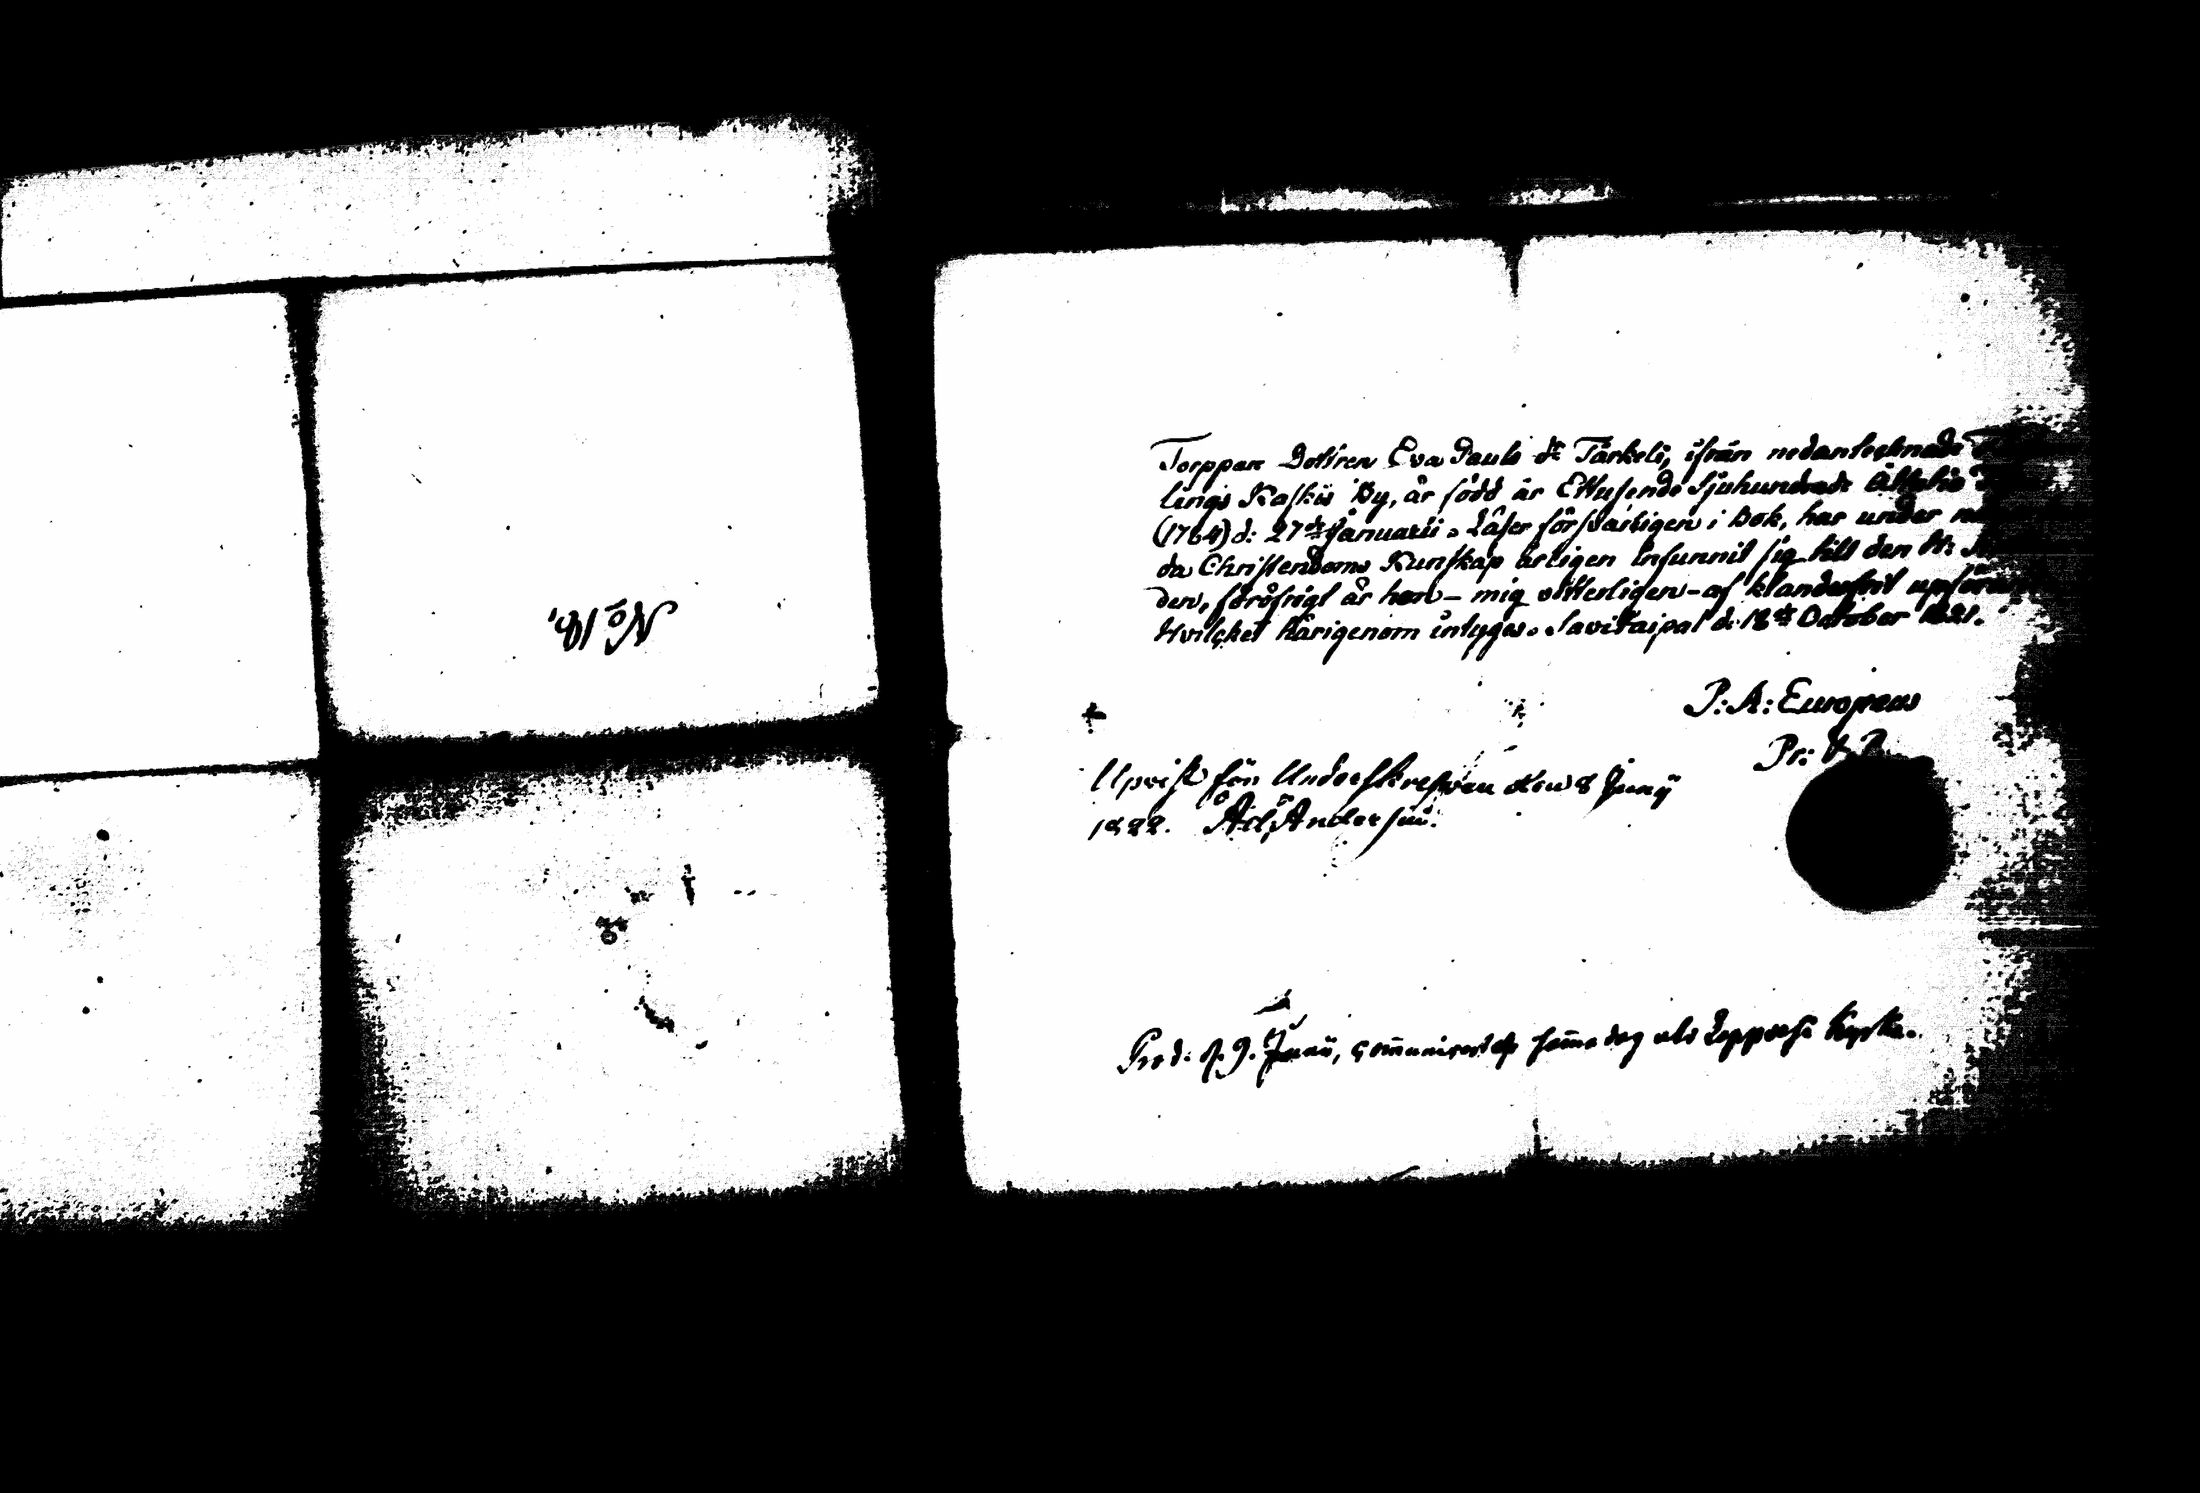 No 16,
Torppare Dottren Eva Pauls dr Tärkelä, ifrån nedantecknade
lings Kaskis By, är född år Ettusende Sjuhundrade
(1764) d: 27de Januarii. Läser försvarligen i Bok, har under
da Christendoms Kunskap årligen infunnit sig till den H:
den, föröfrigt är hon – mig vitterligen – af klanderfrit uppföran
Hvilcket härigenom intygas. Savitaipal d: 18de October 1821.
P: A: Europæus
Pr: &
Upvist för Underskrefven den 8 Junij
1822. Andersin.
Pred: d. 9. Junii, communicerat samma dag uti Kyrka.